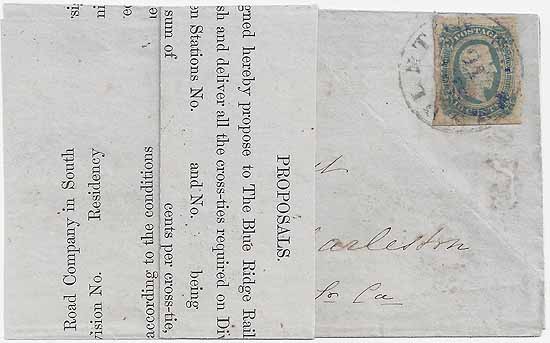 PROPOSALS.
gned hereby propose to The Blue Ridge Rail
sh and deliver all the cross-ties required on Div
en Stations No. and No. being
sum of cents per cross-tie,
Road Company in South
vision No. Residency
according to the conditions
POSTAGE
harleston
So Ca